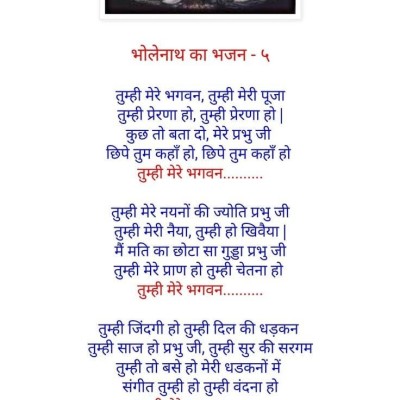 भोलेनाथ का भजन - ५
तुम्ही मेरे भगवन, तुम्ही मेरी पूजा
तुम्ही प्रेरणा हो, तुम्ही प्रेरणा हो|
कुछ तो बता दो, मेरे प्रभु जी
छिपे तुम कहाँ हो, छिपे तुम कहाँ हो
तुम्ही मेरे भगवन..........
तुम्ही मेरे नयनों की ज्योति प्रभु जी
तुम्ही मेरी नैया, तुम्ही हो खिवैया|
मैं मति का छोटा सा गुड्डा प्रभु जी
तुम्ही मेरे प्राण हो तुम्ही चेतना हो
तुम्ही मेरे भगवन..........
तुम्ही जिंदगी हो तुम्ही दिल की धड़कन
तुम्ही साज हो प्रभु जी, तुम्ही सुर की सरगम
तुम्ही तो बसे हो मेरी धडकनों में
संगीत तुम्ही हो तुम्ही वंदना हो